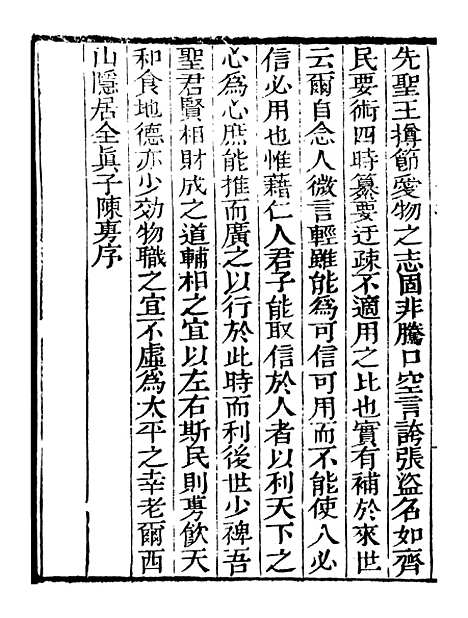 先聖王撙節愛物之志固非騰口空言誇張盜名如齊
民要術四時纂要迂疎不適用之比也實有補於來世
云爾自念人微言輕雖能爲可信可用而不能使人必
信必用也惟藉仁人君子能取信於人者以利天下之
心爲心庶能推而廣之以行於此時而利後世少裨吾
聖君賢相財成之道輔相之宜以左右斯民則旉飲天
和食地德亦少効物職之宜不虛爲太平之幸老爾西
山隱居全眞子陳旉序